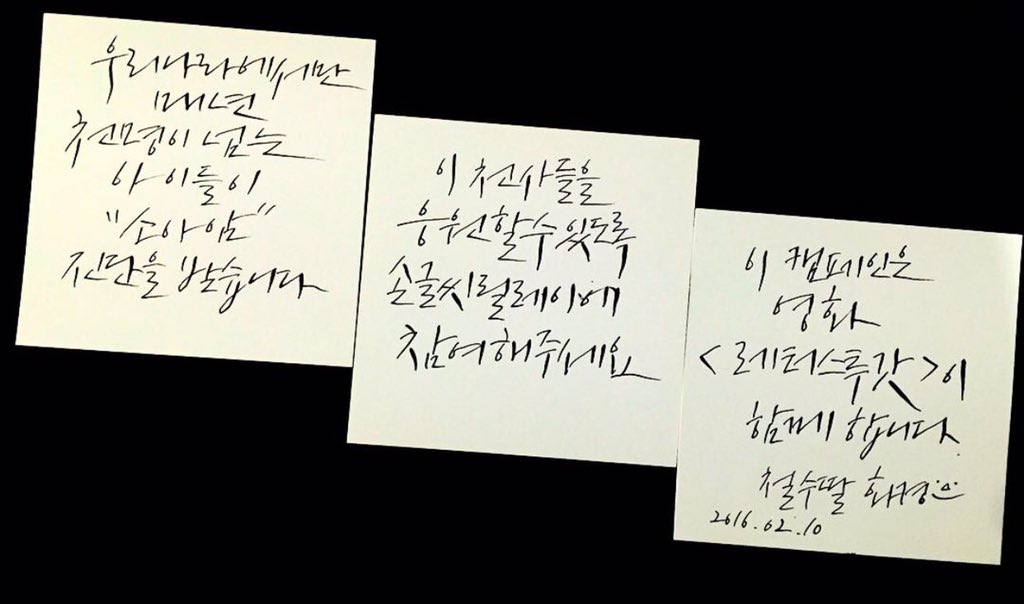 우리나라에서만
매년
천명이 넘는
아이들이
"소아암"
진단을 받습니다
이 천사들을
응원할수있도록
손글씨릴레이에
참여해주세요
이 캠페인은
영화
<레터스투갓>이
함께 합니다.
철수딸 화경
2016.02.10